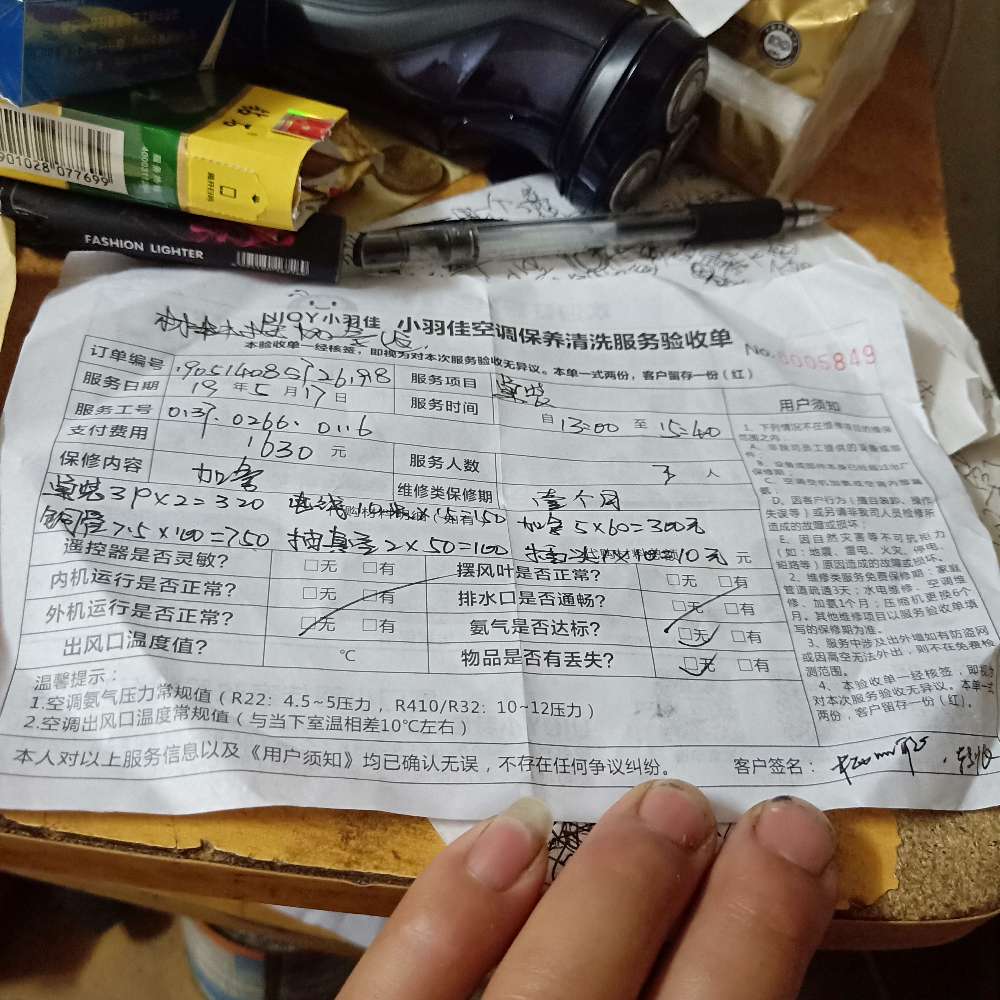 901028 077699
FASHION LIGHTER
NJOY小羽佳 小羽佳空调保养清洗服务验收单
No. 0005849
本验收单一经核签,即视为对本次服务验收无异议。本单一式两份,客户留存一份(红)
订单编号 服务项目 安装
服务日期 19年5月17日 服务时间 自13:00至15:40
服务工号 0137. 0266. 0116
支付费用 1630元 服务人数 3人
保修内容 加氢 维修类保修期 壹个月
安装3P×2=320 电线10米×15=150 加氢5×60=300元
铜管7.5×100=750 抽真空2×50=100 10元 元
遥控器是否灵敏? □无 □有 摆风叶是否正常? □无 □有
内机运行是否正常? □无 □有 排水口是否通畅? □无 □有
外机运行是否正常? □无 □有 氨气是否达标? □无 □有
出风口温度值? ℃ 物品是否有丢失? □无 □有
温馨提示:
1.空调氨气压力常规值(R22:4.5~5压力,R410/R32:10~12压力)
2.空调出风口温度常规值(与当下室温相差10℃左右)
本人对以上服务信息以及《用户须知》均已确认无误,不存在任何争议纠纷。 客户签名:
用户须知
1、下列情况不在维修项目的维保
范围之内:
D、因客户行为(擅自装卸、操作
失误等)或另请非我司人员检修所
造成的故障或损坏;
E、因自然灾害等不可抗拒力
(如:地震、雷电、火灾、停电、
短路等)原因造成的故障或损坏。
2、维修类服务免费保修期:家庭
管道疏通3天;水电维修、空调维
修、加氨1个月;压缩机更换6个
月。其他维修项目以服务验收单填
写的保修期为准。
3、服务中涉及出外墙如有防盗网
或因高空无法外出,则不在免费检
测范围。
4、本验收单一经核签,即视为
对本次服务验收无异议。本单一式
两份,客户留存一份(红)。